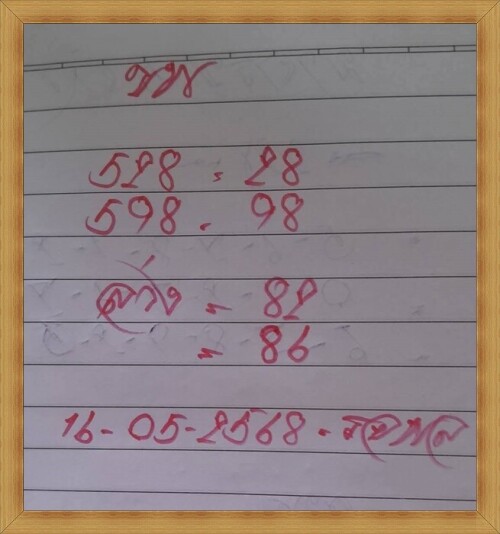 บน
528 . 28
598 . 98
ล่าง = 82
= 86
16-05-2568 - รอผล